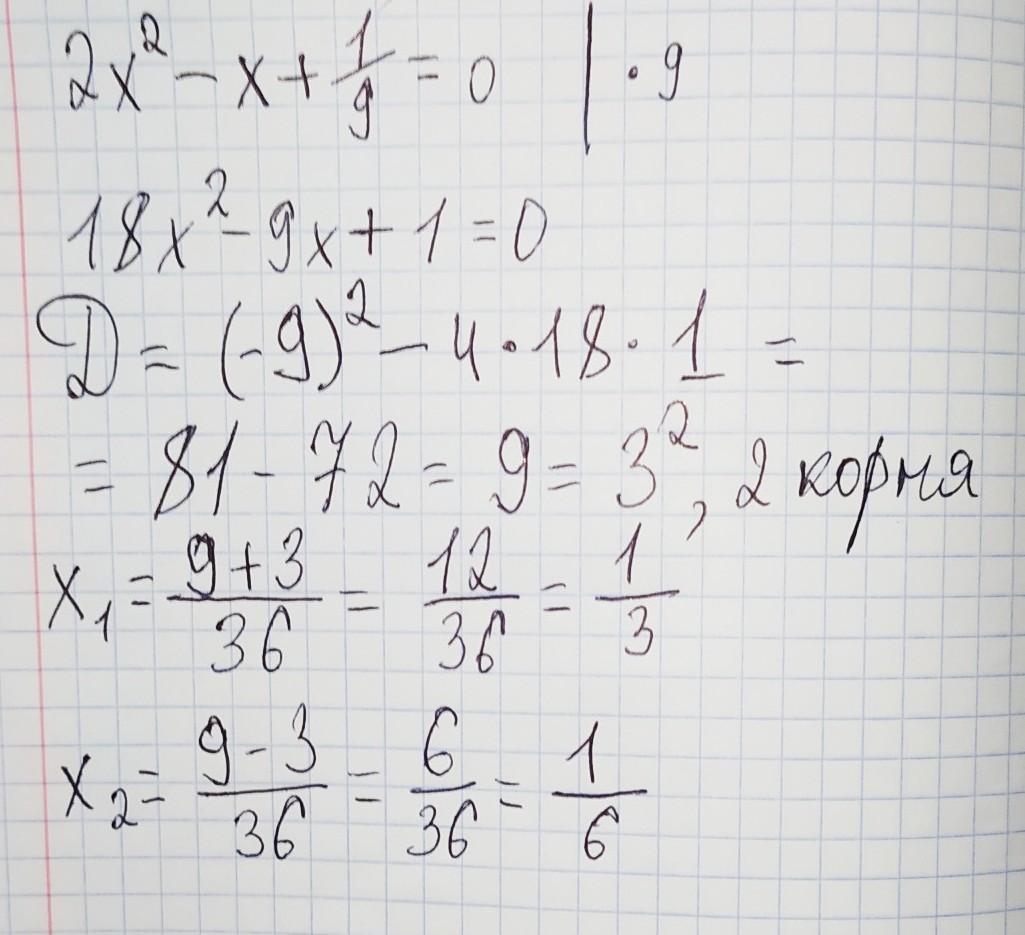 2x² - x + 1/9 = 0 | · 9
18x² - 9x + 1 = 0
D = (-9)² - 4 · 18 · 1 =
= 81 - 72 = 9 = 3², 2 корня
x₁ = (9+3)/36 = 12/36 = 1/3
x₂ = (9-3)/36 = 6/36 = 1/6